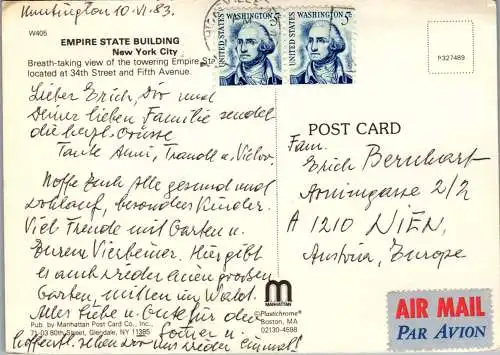 Huntington 10.VI.83.
W405
EMPIRE STATE BUILDING
New York City
Breath-taking view of the towering Empire St
located at 34th Street and Fifth Avenue.
WASHINGTON 5c
UNITED STATES
WASHINGTON 5c
UNITED STATES
P327489
Lieber Erich, Dir und
Deiner lieben Familie sendet
die herzl. Grüsse
Tante Anni, Traudl u. Victor.
Hoffe Euch Alle gesund und
wohlauf, besonders Kinder.
Viel Freude mit Garten u.
Eurem Vierbeiner. Hier gibt
es auch wieder einen großen
Garten, mitten im Wald.
Alles Liebe u. Gute für
u
Hoffentl. sehen wir uns wieder einmal!
Pub. by Manhattan Post Card Co., Inc.,
71-03 80th Street, Glendale, NY 11385
MANHATTAN
©Plastichrome®
Boston, MA
02130-4598
POST CARD
Fam.
Erich Bernhart
2/2
A 1210 WIEN,
Austria, Europe
AIR MAIL
PAR AVION